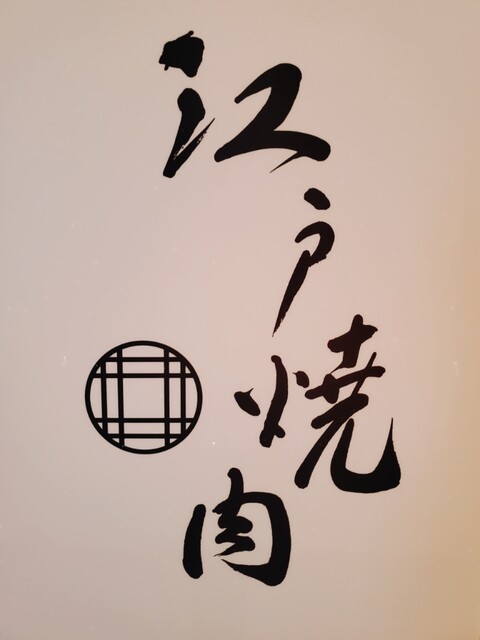 江戸焼肉